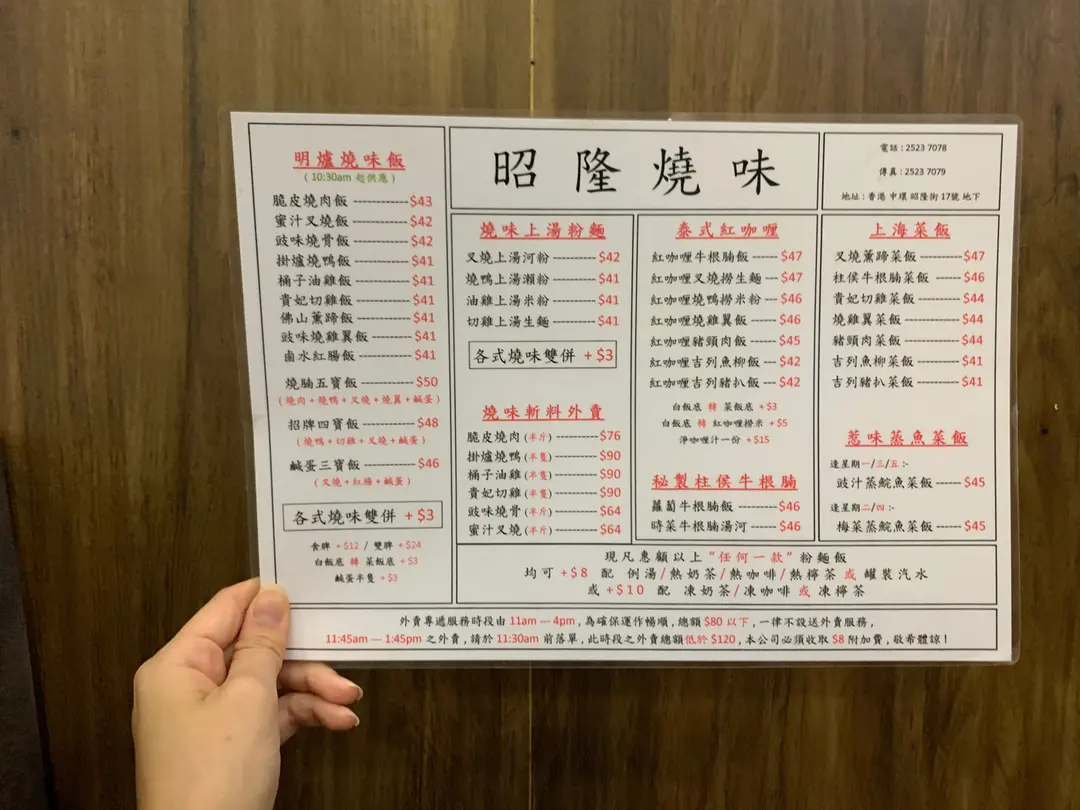 明爐燒味飯
( 10:30am 起供應 )
脆皮燒肉飯 ------------$43
蜜汁叉燒飯 ------------$42
豉味燒骨飯 ------------$42
掛爐燒鴨飯 ------------$41
桶子油雞飯 ------------$41
貴妃切雞飯 ------------$41
佛山薰蹄飯 ------------$41
豉味燒雞翼飯 ----------$41
鹵水紅腸飯 ------------$41
燒腩五寶飯 ------------$50
( 燒肉 + 燒鴨 + 叉燒 + 燒翼 + 鹹蛋 )
招牌四寶飯 ------------$48
( 燒鴨 + 切雞 + 叉燒 + 鹹蛋 )
鹹蛋三寶飯 ------------$46
( 叉燒 + 紅腸 + 鹹蛋 )
各式燒味雙併 + $3
食髀 + $12 / 雙髀 + $24
白飯底 轉 菜飯底 + $3
鹹蛋半隻 + $3
昭隆燒味
電話 : 2523 7078
傳真 : 2523 7079
地址 : 香港 中環 昭隆街 17號 地下
燒味上湯粉麵
叉燒上湯河粉 ----------$42
燒鴨上湯瀨粉 ----------$41
油雞上湯米粉 ----------$41
切雞上湯生麵 ----------$41
各式燒味雙併 + $3
燒味斬料外賣
脆皮燒肉 (半斤) ---------$76
掛爐燒鴨 (半隻) ---------$90
桶子油雞 (半隻) ---------$90
貴妃切雞 (半隻) ---------$90
豉味燒骨 (半斤) ---------$64
蜜汁叉燒 (半斤) ---------$64
泰式紅咖喱
紅咖喱牛根腩飯 -----$47
紅咖喱叉燒撈生麵 ---$47
紅咖喱燒鴨撈米粉 ---$46
紅咖喱燒雞翼飯 -----$46
紅咖喱豬頸肉飯 -----$45
紅咖喱吉列魚柳飯 ---$42
紅咖喱吉列豬扒飯 ---$42
白飯底 轉 菜飯底 + $3
白飯底 轉 紅咖喱撈米 + $5
淨咖喱汁一份 + $15
秘製柱侯牛根腩
蘿蔔牛根腩飯 --------$46
時菜牛根腩湯河 ------$46
上海菜飯
叉燒薰蹄菜飯 ---------$47
柱侯牛根腩菜飯 -------$46
貴妃切雞菜飯 ---------$44
燒雞翼菜飯 -----------$44
豬頸肉菜飯 -----------$44
吉列魚柳菜飯 ---------$41
吉列豬扒菜飯 ---------$41
惹味蒸魚菜飯
逢星期一/三/五 :-
豉汁蒸鯇魚菜飯 -------$45
逢星期二/四 :-
梅菜蒸鯇魚菜飯 -------$45
現凡惠顧以上 "任何一款" 粉麵飯
均可 + $8 配 例湯/熱奶茶/熱咖啡/熱檸茶 或 罐裝汽水
或 + $10 配 凍奶茶/凍咖啡 或 凍檸茶
外賣專遞服務時段由 11am — 4pm , 為確保運作暢順 , 總額 $80 以下 , 一律不設送外賣服務 ,
11:45am — 1:45pm 之外賣 , 請於 11:30am 前落單 , 此時段之外賣總額低於 $120 , 本公司必須收取 $8 附加費 , 敬希體諒 !